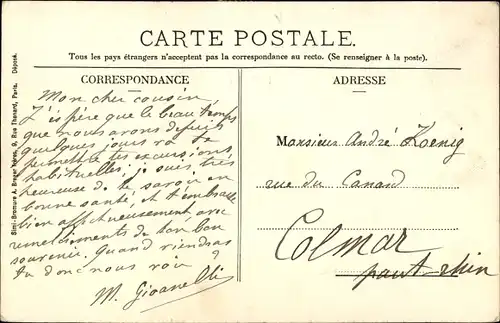 CARTE POSTALE.
Tous les pays étrangers n'acceptent pas la correspondance au recto. (Se renseigner à la poste).
CORRESPONDANCE
Mon cher cousin,
J'éspère que le beau temps
que nous avons depuis
quelques jours va te
permettre les excursions
habituelles. je suis très
heureuse de te savoir en
bonne santé, et t'embrasse
bien affectueusement avec
remerciments de ton bon
souvenir. Quand viendras
tu donc nous voir ?
M. Gioanelli
ADRESSE
Monsieur André Koenig
rue du Canard
Colmar
haut-rhin
Simi-Bromure A. Breger frères, 9, Rue Thénard, Paris. Déposé.